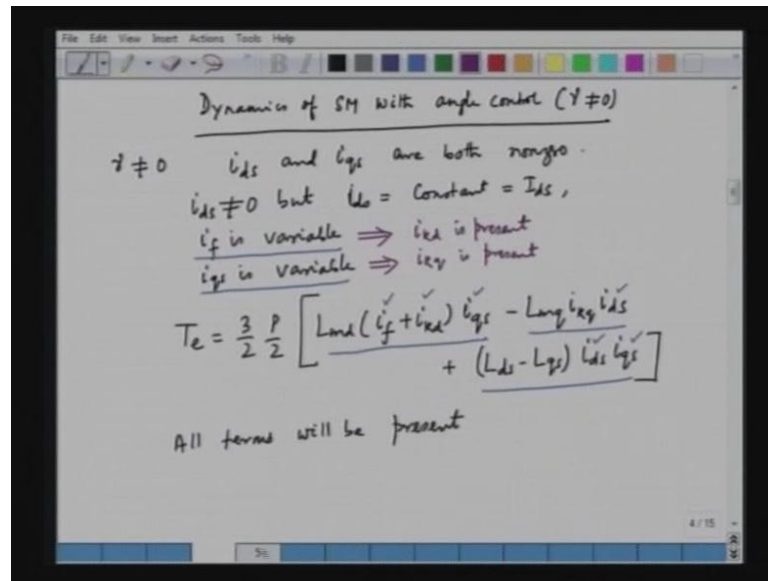 File Edit View Insert Actions Tools Help
Dynamics of SM with angle control (γ ≠ 0)
γ ≠ 0 ids and iqs are both nonzero.
ids ≠ 0 but ids = Constant = Ids,
if is variable ⇒ ikd is present
iqs is variable ⇒ ikq is present
Te = 3/2 P/2 [ Lmd (if + ikd) iqs - Lmq ikq ids
+ (Lds - Lqs) ids iqs ]
All terms will be present
4 / 15